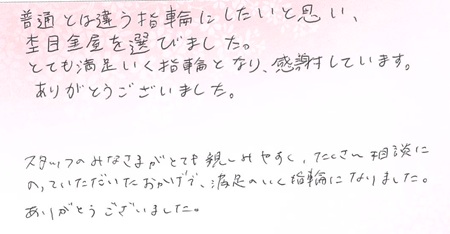 普通とは違う指輪にしたいと思い、
杢目金屋を選びました。
とても満足いく指輪となり、感謝しています。
ありがとうございました。
スタッフのみなさまがとても親しみやすく、たくさん相談に
のっていただいたおかげで、満足のいく指輪になりました。
ありがとうございました。